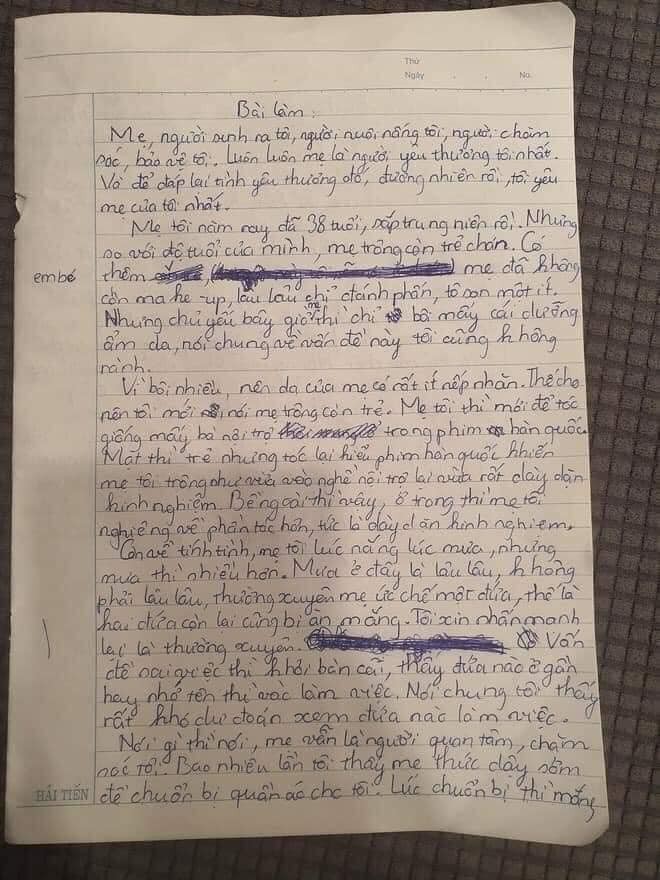 Thứ
Ngày . . No.
Bài làm:
Mẹ, người sinh ra tôi, người nuôi nấng tôi, người chăm
sóc, bảo vệ tôi. Luôn luôn mẹ là người yêu thương tôi nhất.
Và để đáp lại tình yêu thương đó, đương nhiên rồi, tôi yêu
mẹ của tôi nhất.
Mẹ tôi năm nay đã 38 tuổi, sắp trung niên rồi. Nhưng
so với độ tuổi của mình, mẹ trông còn trẻ chán. Có
embé thêm mẹ đã không
còn ma ke-up, lâu lâu chỉ đánh phấn, tô son một ít.
Nhưng chủ yếu bây giờ mẹ thì chỉ bôi mấy cái dưỡng
ẩm da, nói chung về vấn đề này tôi cũng không
rành.
Vì bôi nhiều, nên da của mẹ có rất ít nếp nhăn. Thế cho
nên tôi mới nói mẹ trông còn trẻ. Mẹ tôi thì mới để tóc
giống mấy bà nội trợ trong phim hàn quốc.
Mặt thì trẻ nhưng tóc lại kiểu phim hàn quốc khiến
mẹ tôi trông như vừa vào nghề nội trợ lại vừa rất dày dặn
kinh nghiệm. Bề ngoài thì vậy, ở trong thì mẹ tôi
nghiêng về phần tóc hơn, tức là dày dặn kinh nghiệm.
Còn về tính tình, mẹ tôi lúc nắng lúc mưa, nhưng
mưa thì nhiều hơn. Mưa ở đây là lâu lâu, không
phải lâu lâu, thường xuyên mẹ ức chế một đứa, thế là
hai đứa còn lại cũng bị ăn mắng. Tôi xin nhấn mạnh
lại là thường xuyên. Vấn
đề sai việc thì khỏi bàn cãi, thấy đứa nào ở gần
hay nhớ tên thì vác làm việc. Nói chung tôi thấy
rất khó dự đoán xem đứa nào làm việc.
Nói gì thì nói, mẹ vẫn là người quan tâm, chăm
sóc tôi. Bao nhiêu lần tôi thấy mẹ thức dậy sớm
HẢI TIẾN để chuẩn bị quần áo cho tôi. Lúc chuẩn bị thì mắng